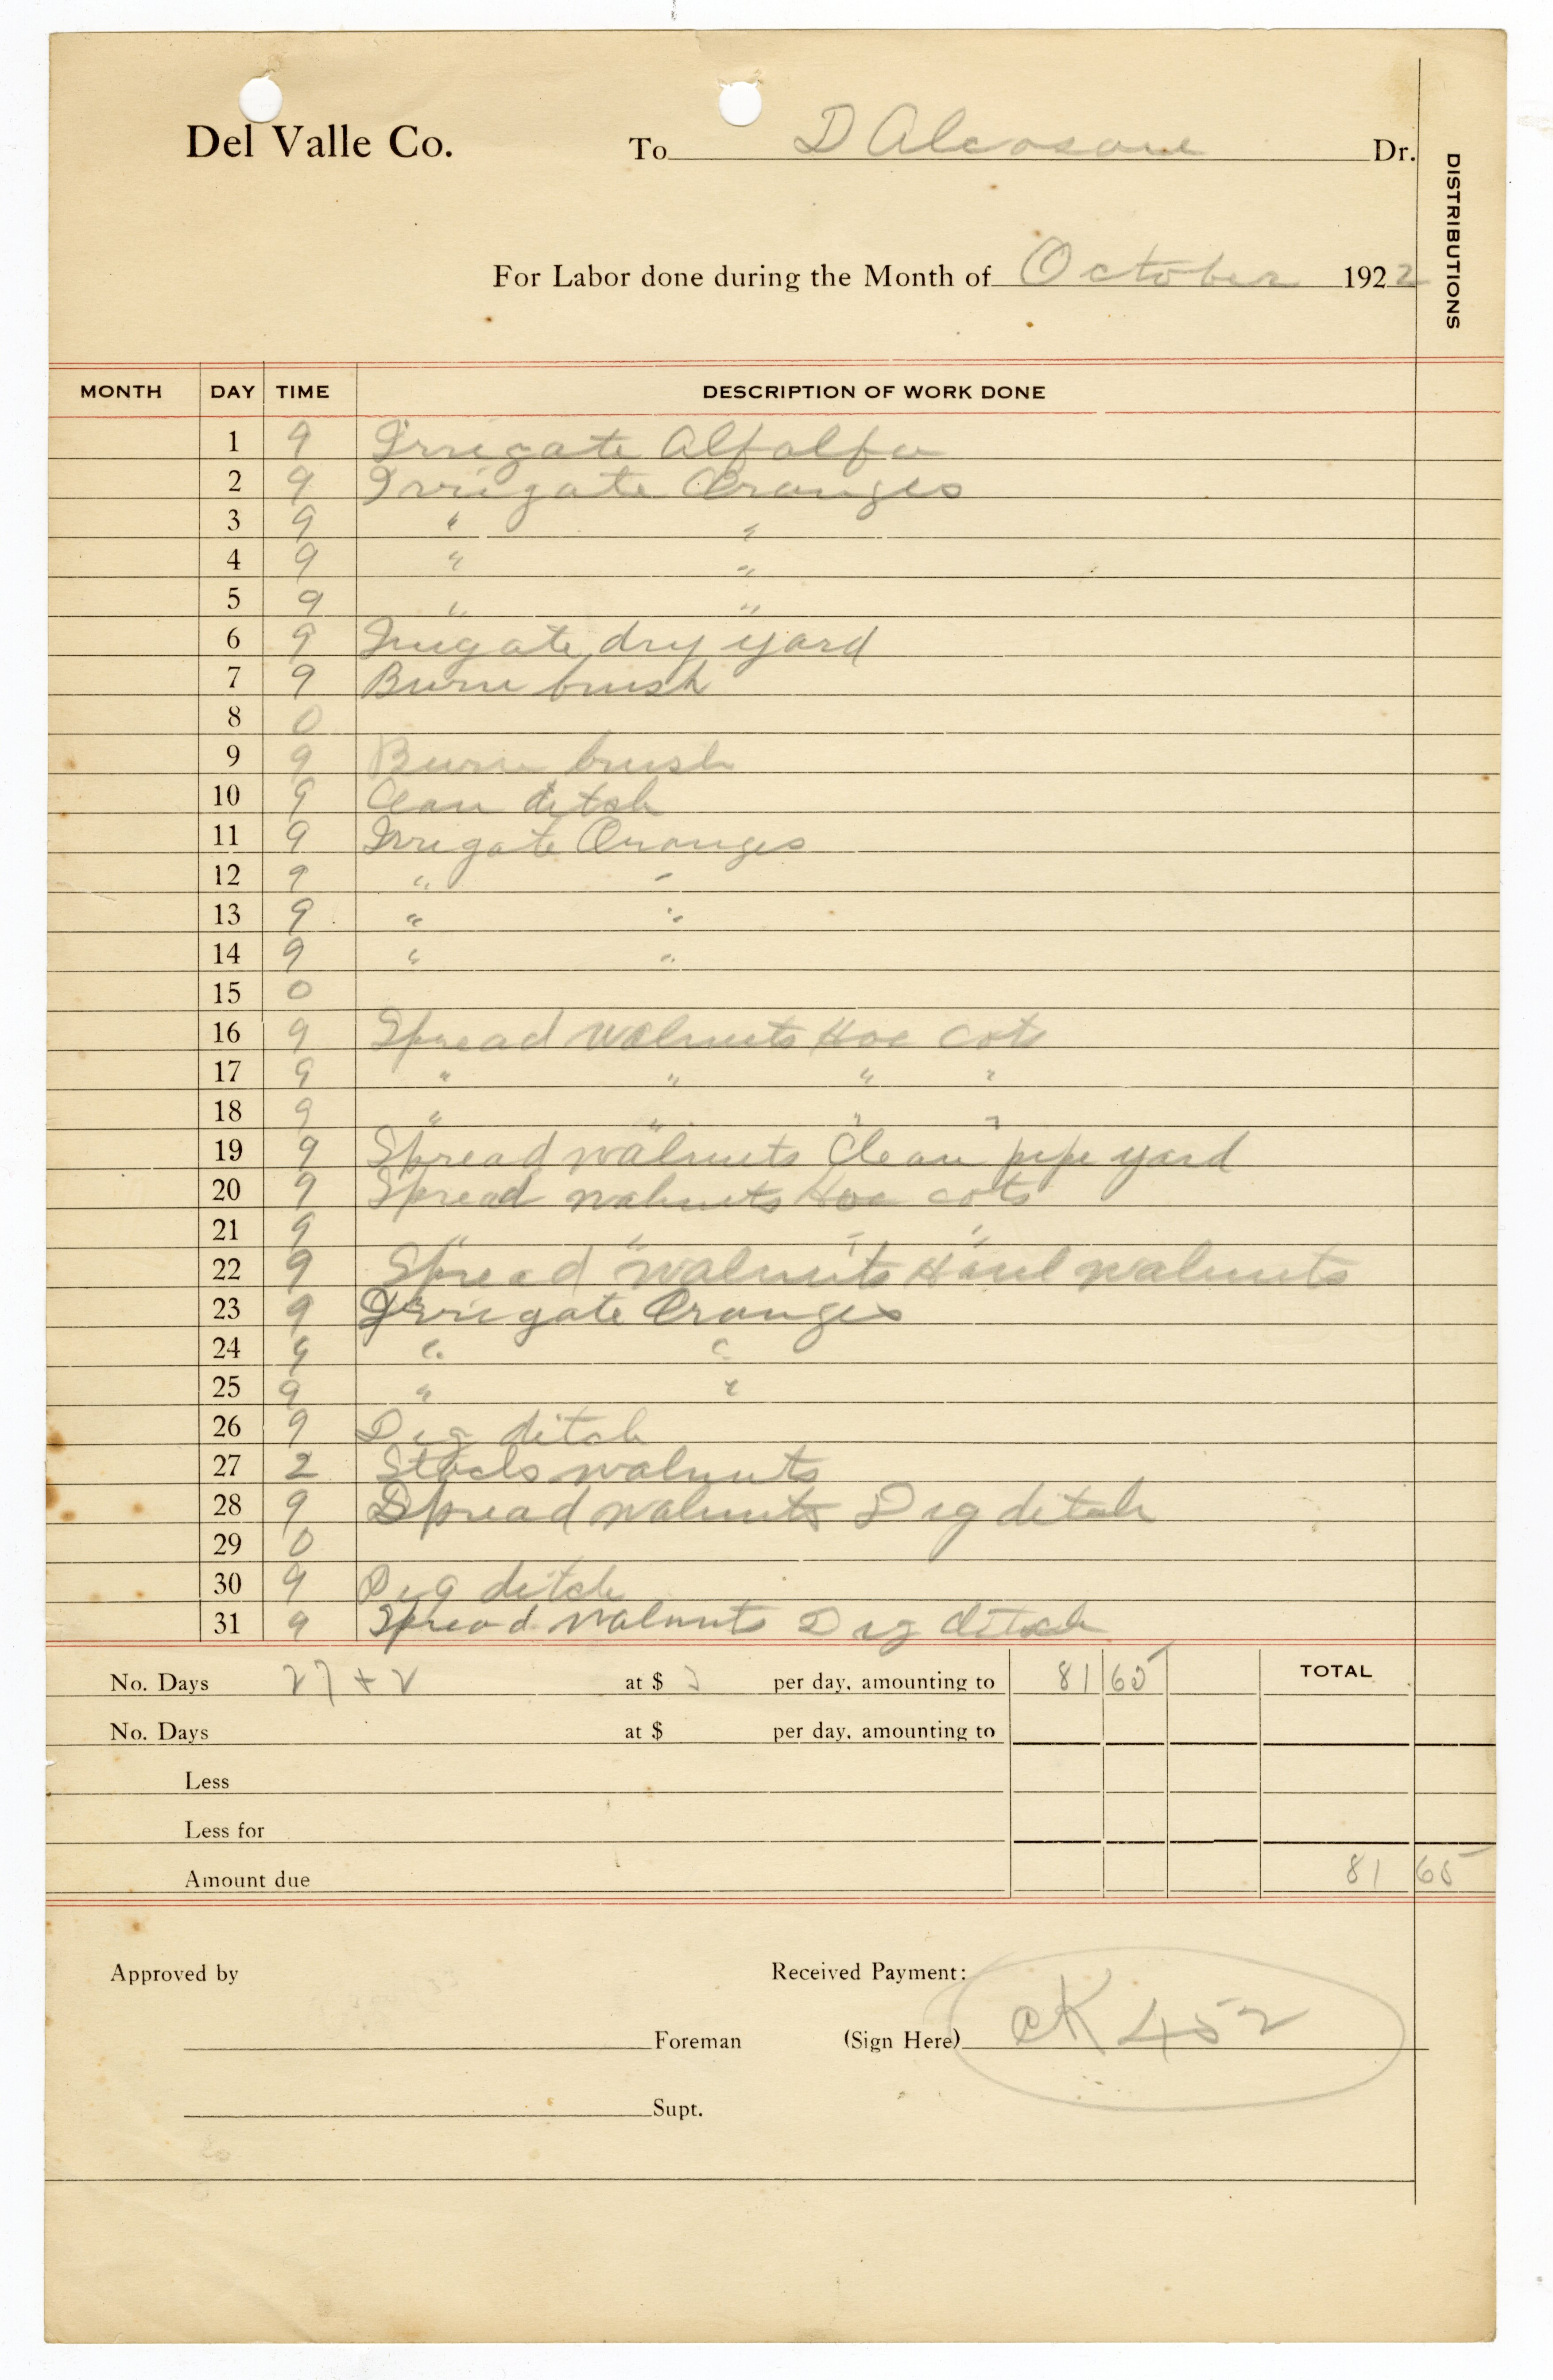 Del Valle Co. To D Alcosane Dr.
DISTRIBUTIONS
For Labor done during the Month of October 1922
MONTH DAY TIME DESCRIPTION OF WORK DONE
1 9 Irrigate Alfalfa
2 9 Irrigate Oranges
3 9 " "
4 9 " "
5 9 " "
6 9 Irrigate dry yard
7 9 Burn brush
8 0
9 9 Burn brush
10 9 Clean ditch
11 9 Irrigate Oranges
12 9 " "
13 9 " "
14 9 " "
15 0
16 9 Spread walnuts Hoe cots
17 9 " " " "
18 9 " " " "
19 9 Spread walnuts Clean pipe yard
20 9 Spread walnuts Hoe cots
21 9 " " " "
22 9 Spread walnuts Haul walnuts
23 9 Irrigate Oranges
24 9 " "
25 9 " "
26 9 Dig ditch
27 2 walnuts
28 9 Spread walnuts Dig ditch
29 0
30 9 Dig ditch
31 9 Spread walnuts Dig ditch
No. Days 27 + 2 at $ 3 per day, amounting to 81 65 TOTAL
No. Days at $ per day, amounting to
Less
Less for
Amount due 81 65
Approved by Received Payment:
Foreman (Sign Here) CK 452
Supt.